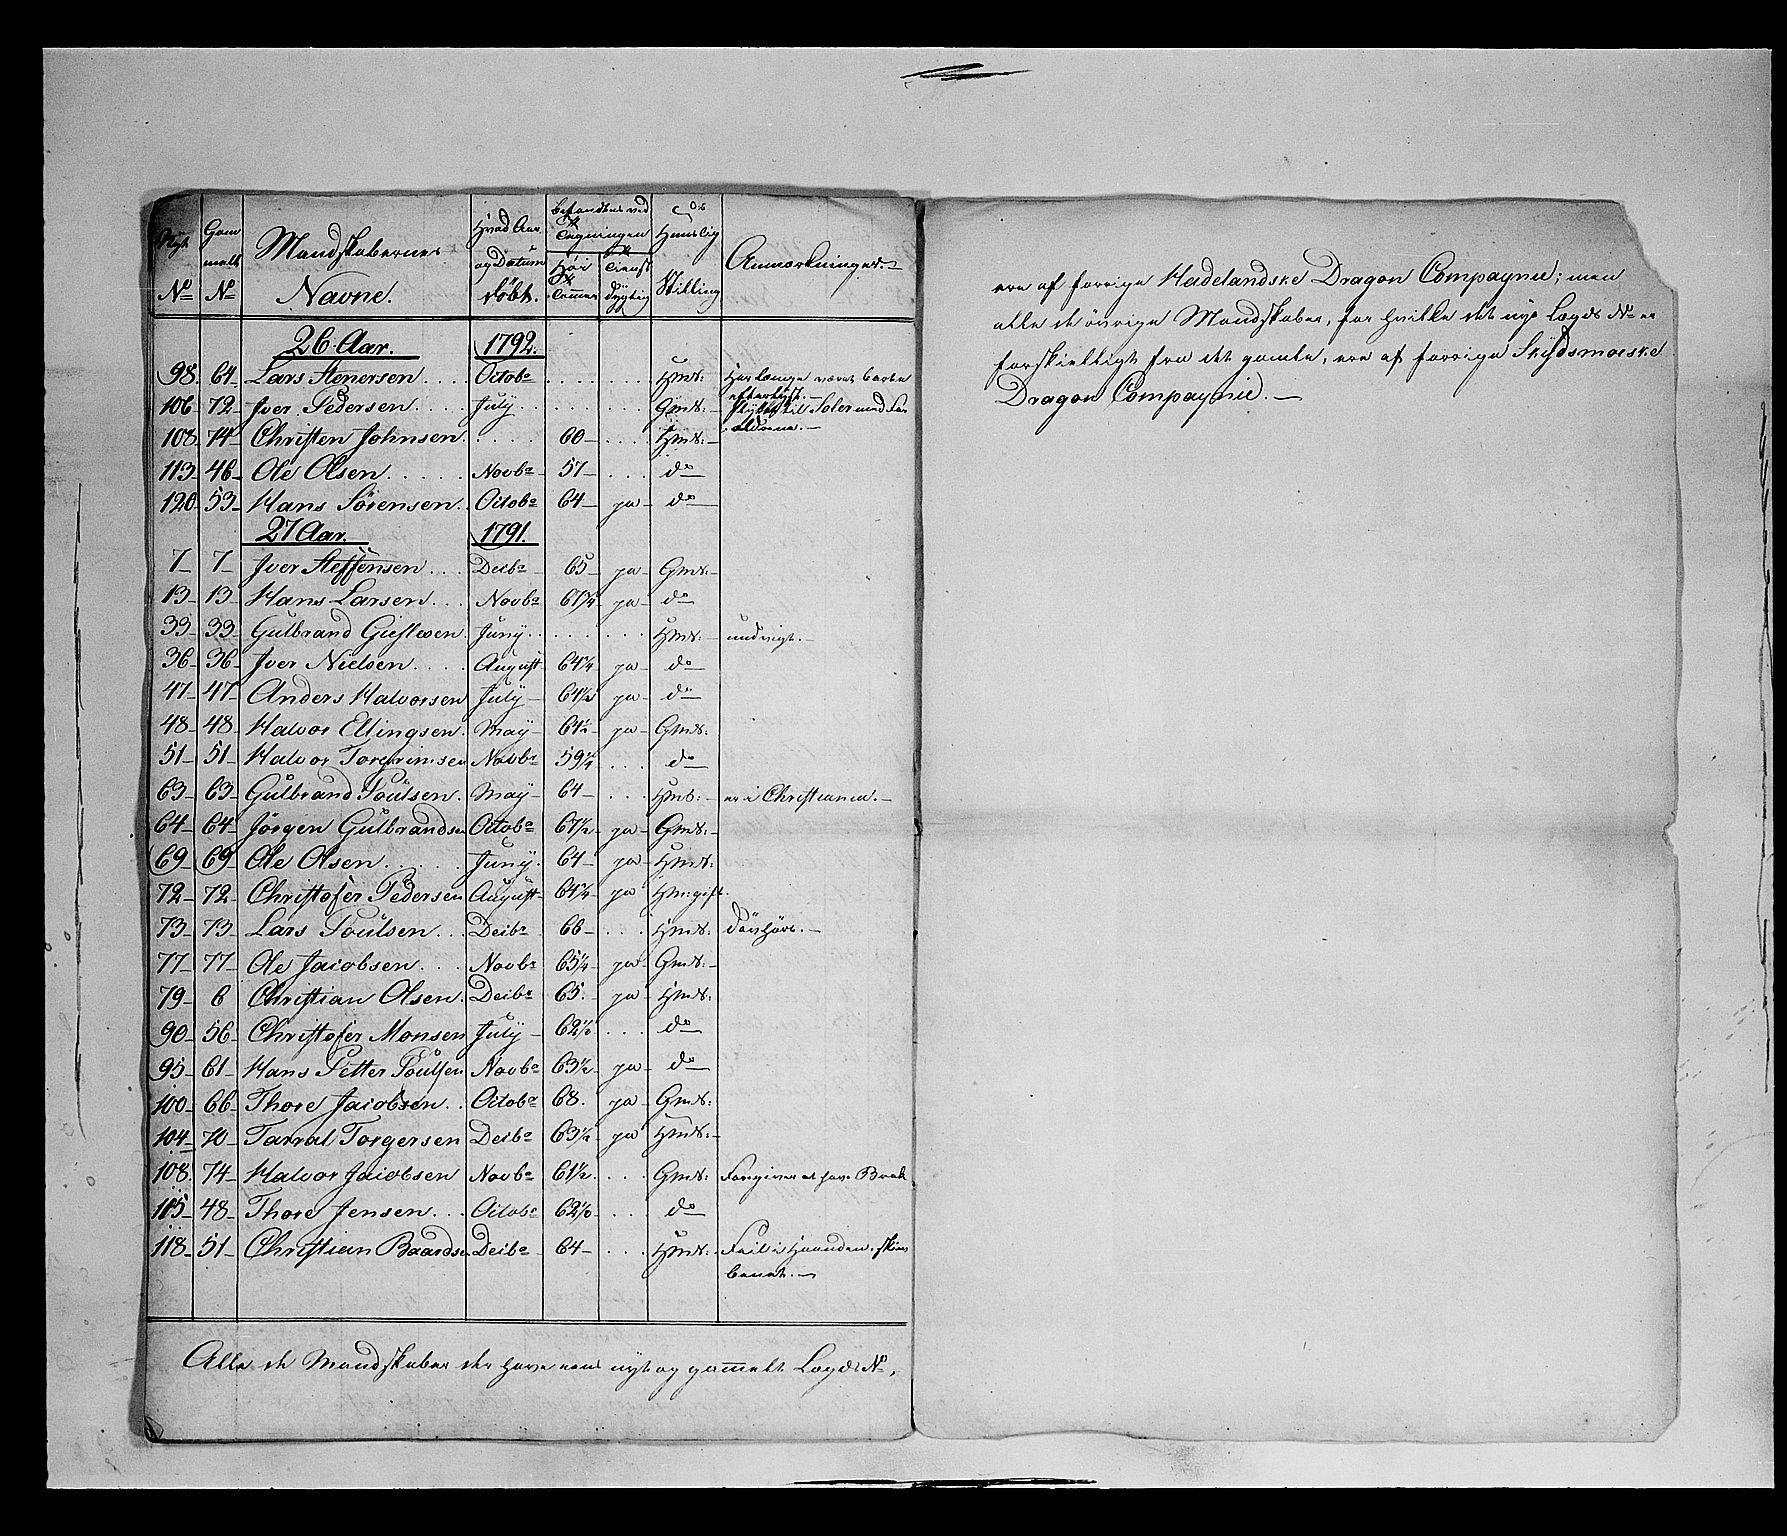 Nyt Gam Mandskabernes Hvad Aar befandtes ved Huuslig Anmærkninger.
melt og Datum Tagningen
No No Navne. födt. Höi Tommer tienst dygtig Stilling
26 Aar. 1792.
98. 64 Lars Stenersen . . . . Octobr . . . . . . . Hmd: Har længe været borte
efterlyst. —
106 72 Iver Pedersen . . . . July . . . . . . . . Gmd: flyttet til Soler med For
ældrene. —
108 74 Christen Johnsen . . . . . 60 — . . . . Hmd: —
113 46 Ole Olsen . . . . . Novbr 57 — . . . . do
120 53 Hans Sørensen . . Octobr 64 — ja — do
27 Aar. 1791.
7 — 7 — Iver Steffensen . . . Decbr 65 — ja — Gmd: —
13 — 13 — Hans Larsen . . . Novbr 67¾ ja — do
33 33 Gulbrand Gieflesen . Juny . . . . . . . . Hmd: — undvigt. —
36 — 36 — Iver Nielsen . . . . August 64¼ ja — do
47 — 47 — Anders Halvorsen July — 64½ ja — do
48 — 48 — Halvor Ellingsen . May — 64½ ja — Gmd:
51 — 51 — Halvor Torgrimsen Novbr 59¼ . . . do
63 — 63 — Gulbrand Poulsen . May — 64 — . . . Hmd: — er i Christiania. —
64 — 64 — Jörgen Gulbrandse Octobr 67½ ja — Gmd: —
69 — 69 — Ole Olsen . . . . . Juny . 64 — ja — Hmd:
72 — 72 — Christofer Pedersen August 64¼ ja Hm: gift
73 — 73 — Lars Poulsen . . . Decbr 66 — . . . Hmd: dövhört. —
77 — 77 — Ole Jacobsen . . . Novbr 65¼ ja — Gmd: —
79 — 6 Christian Olsen . Decbr 65. — ja — Hmd:
90 — 56 — Christofer Monsen July — 62½ . . . do
95 — 61 — Hans Petter Poulsen Novbr 63½ ja — do
100 — 66 — Thore Jacobsen . . Octobr 68. ja — Gmd:
104 — 70 — Tarral Torgersen Decbr 63½ ja Hmd: —
108. 74 — Halvor Jacobsen Novbr 61½ . . . Gmd: Foregiver at have Brok
115 48 — Thore Jensen . . . Octobr 62½ . . . do
118 — 51 — Christian Baardse Decbr 64 — . . . Hmd: Feil i Haanden, skien
benet. —
Alle de Mandskaber der have eens nyt og gammelt Lægds No,
ere af forrige Hadelandske Dragon Compagnie; men
alle de övrige Mandskaber, for hvilke det nye Lægds No er
forskielligt fra det gamle, ere af forrige Skydsmoeske
Dragon Compagnie. —